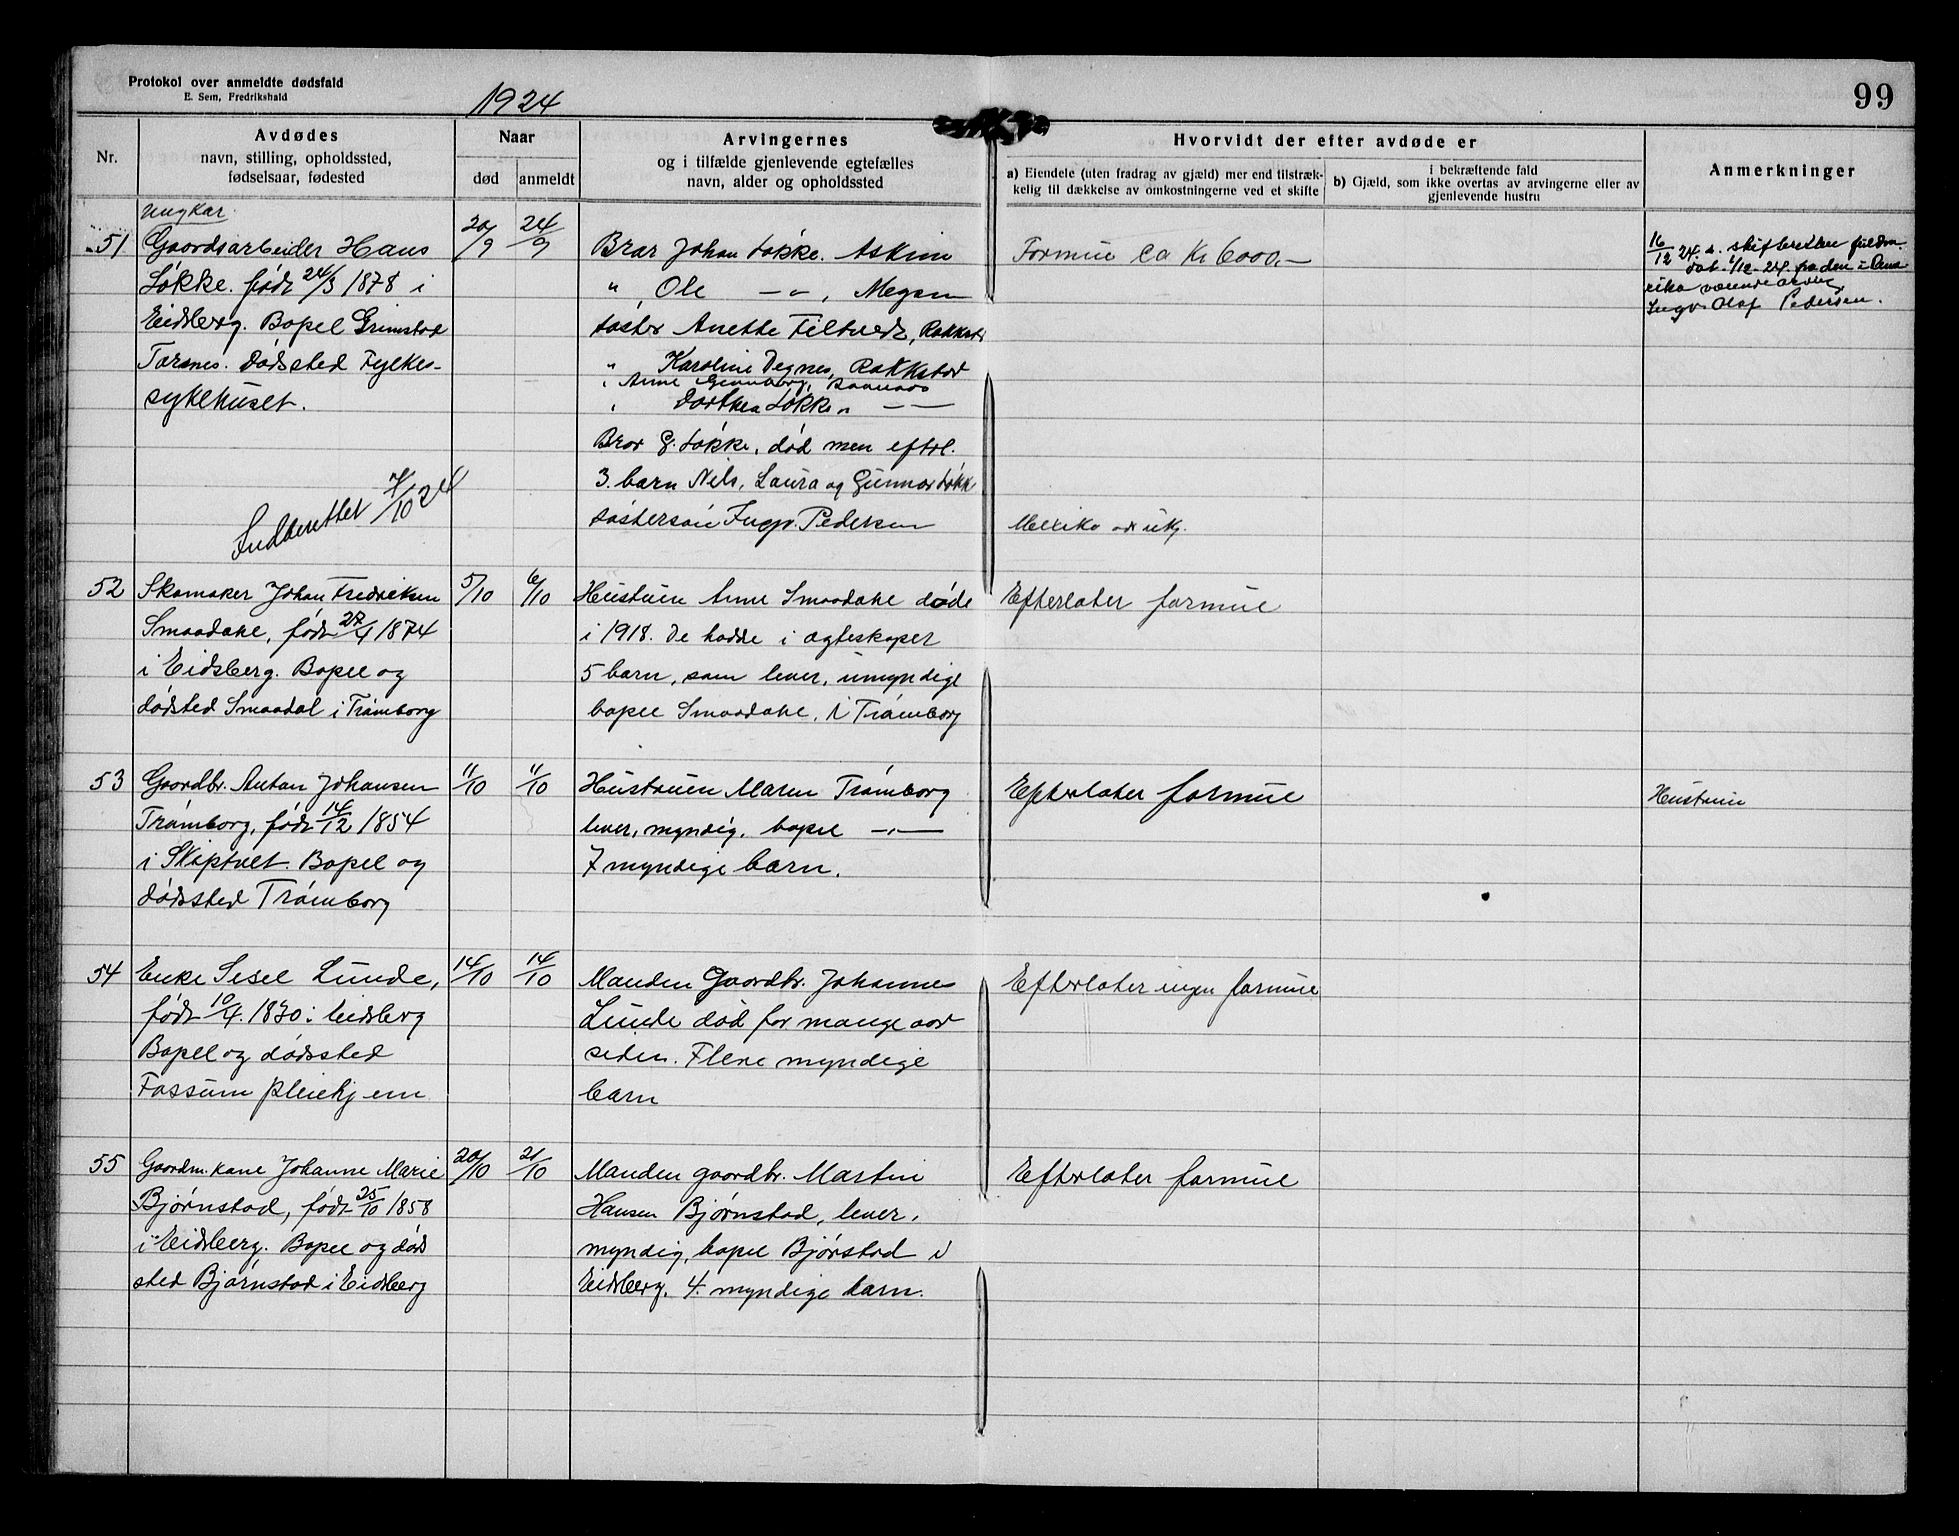 Protokol over anmeldte dødsfald
E. Sem, Fredrikshald
1924
99
Nr.
Avdødes
navn, stilling, opholdssted,
fødselsaar, fødested
Naar
død
anmeldt
Arvingernes
og i tilfælde gjenlevende egtefælles
navn, alder og opholdssted
Hvorvidt der efter avdøde er
a) Eiendele (uten fradrag av gjæld) mer end tilstræk-
kelig til dækkelse av omkostningerne ved et skifte
i bekræftende fald
b) Gjæld, som ikke overtas av arvingerne eller av
gjenlevende hustru
Anmerkninger
Ungkar
51
Gaardsarbeider Hans
Løkke. født 24/3 1878 i
Eidsberg. Bopel Grimstad
Torsnes. Dødsted Fylkes-
sykehuset.
Indberettet 7/10 24
20/9
24/9
Bror Johan Løkke. Askim
" Ole —"—, Mysen
søster Anette Filtvedt, Rakkest
" Karoline Degnes, Rakkstad
" Anne
" Dorthea Løkke " — —
Bror G. Løkke, død men eftrl.
3. barn Nils, Laura og Gunnar Løkk
søstersøn Ingv. Pedersen
Formue ca Kr 6000.—
Mexiko
16/12 24. s. skifteretten fuldm.
dat. 1/12-24 fra den i Ame
rika værende arving
Ingv. Olaf Pedersen.
52
Skomaker Johan Fredriksen
Smaadale, født 27/4 1874
i Eidsberg. Bopel og
dødsted Smaadal i Trømborg
5/10
6/10
Hustruen Anne Smaadale døde
i 1918. De hadde i ægteskapet
5 barn, som lever, umyndige
bopel Smaadale, i Trømborg
Efterlater formue
53
Gaardbr. Anton Johansen
Trømborg, født 14/12 1854
i Skiptvet. Bopel og
dødssted Trømborg
11/10
11/10
Hustruen Maren Trømborg
lever, myndig. bopel —"—
7 myndige barn.
Efterlater formue
Hustruen
54
Enke Sesel Lunde,
født 10/4. 1830 i Eidsberg
Bopel og dødssted
Fossum pleiehjem
14/10
14/10
Manden Gaardbr. Johannes
Lunde død for mange aar
siden. Flere myndige
barn
Efterlater ingen formue
55
Gaardm. kone Johanne Marie
Bjørnstad, født 25/10 1858
i Eidsberg. Bopel og død
sted Bjørnstad i Eidsberg
20/10
21/10
Manden gaardbr. Martin
Hansen Bjørnstad, lever,
myndig, bopel Bjørstad i
Eidsberg. 4. myndige barn.
Efterlater formue